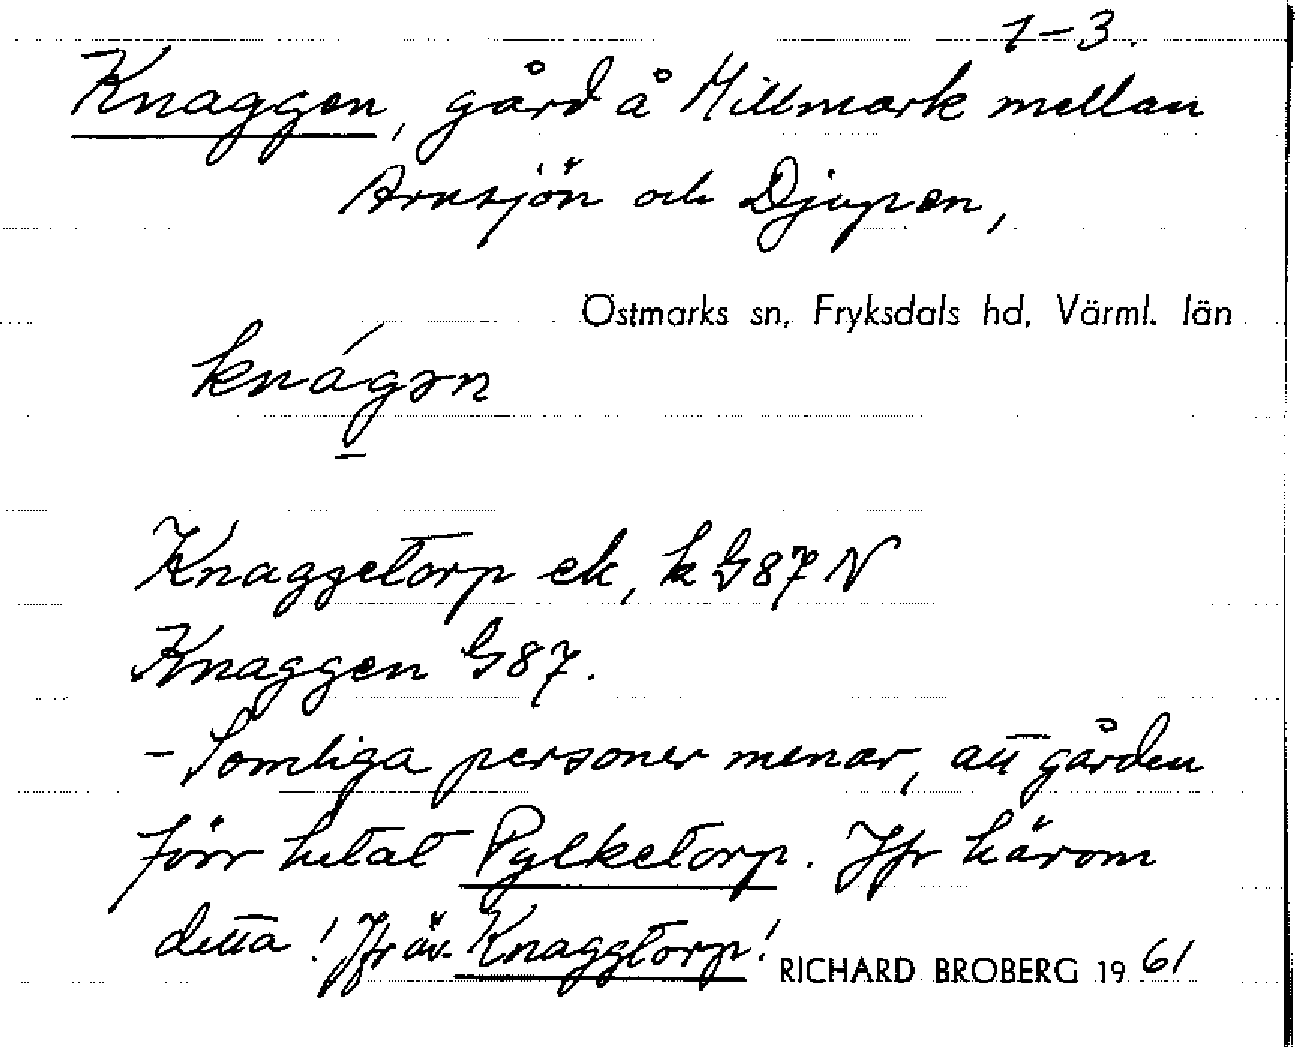 1-3.
Knaggen, gård å Millmark mellan
Arnsjön och Djupen,
Östmarks sn, Fryksdals hd, Värml. län
knágən
Knaggetorp ek, k G87 N
Knaggen G87.
- Somliga personer menar, att gården
förr hetat Pylketorp. Jfr härom
detta! Jfr äv. Knaggtorp!
RICHARD BROBERG 1961